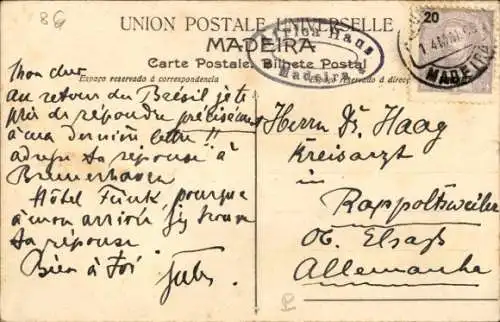 86
UNION POSTALE UNIVERSELLE
MADEIRA
Carte Postale. Bilhete Postal
Espaço reservado á correspondencia
Espaço reservado á direcç
Africa Haus
Madeira
20
MADEIRA
Mon cher
au retour du Brésil je te
prie de répondre précisément
à ma dernière lettre!!
adresse ta réponse à
Bremerhaven
Hôtel Funk, pourque
à mon arrivée j'y trouve
ta réponse.
Bien à toi
Jules
Herrn Dr. Haag
Kreisarzt
in
Rappoltsweiler
Ob. Elsaß
Allemanha